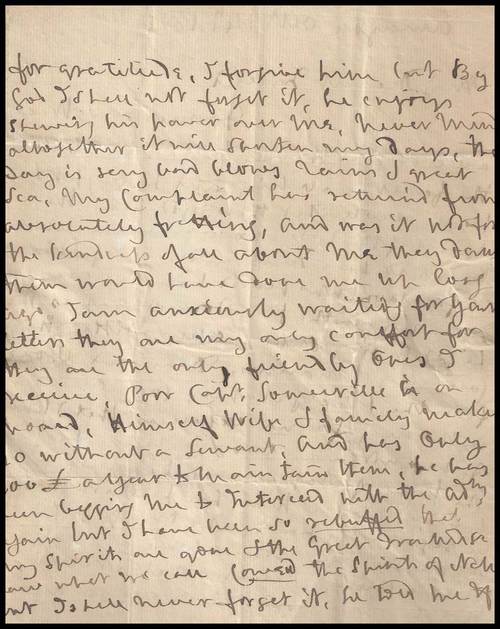 for gratitude, I forgive him but By
God I shall not forget it, he enjoys
shewing his power over me, Never Mind
altogether it will shorten my days, the
Day is very bad blows rains & great
Sea, My Complaint has returnd from
absolutely fretting, and was it not for
the kindness of all about me they damn
them would have done me up long
ago. I am anxiously waiting for your
letters they are my only comfort for
they are the only friendly ones I
receive, Poor Capt. Somerville is on
board, Himself Wife & family make
20 without a Servant, and has only
100 £ a year to maintain them, he has
been begging me to Interced with the Admty
again but I have been so rebuffed that
my spirits are gone & the Great
what we call Cowed the Spirits of Nel
but I shall never forget it, he told me if